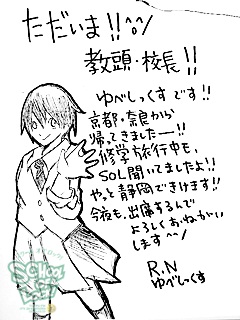 ただいま!!^o^/
教頭・校長!!
ゆべしっくす です!!
京都・奈良から
帰ってきましたー!!
修学旅行中も、
SOL聞いてましたよ!!
やっと静岡できけます!!
今夜も、出席するんで
よろしくおねがい
します^^/
R.N
ゆべしっくす
SCHOOL OF LOCK!